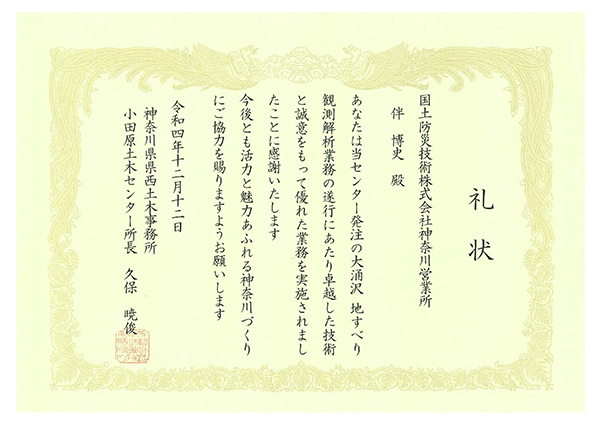 礼状
国土防災技術株式会社神奈川営業所
伴 博史 殿
あなたは当センター発注の大涌沢 地すべり
観測解析業務の遂行にあたり卓越した技術
と誠意をもって優れた業務を実施されまし
たことに感謝いたします
今後とも活力と魅力あふれる神奈川づくり
にご協力を賜りますようお願いします
令和四年十二月十二日
神奈川県県西土木事務所
小田原土木センター所長 久保 暁俊